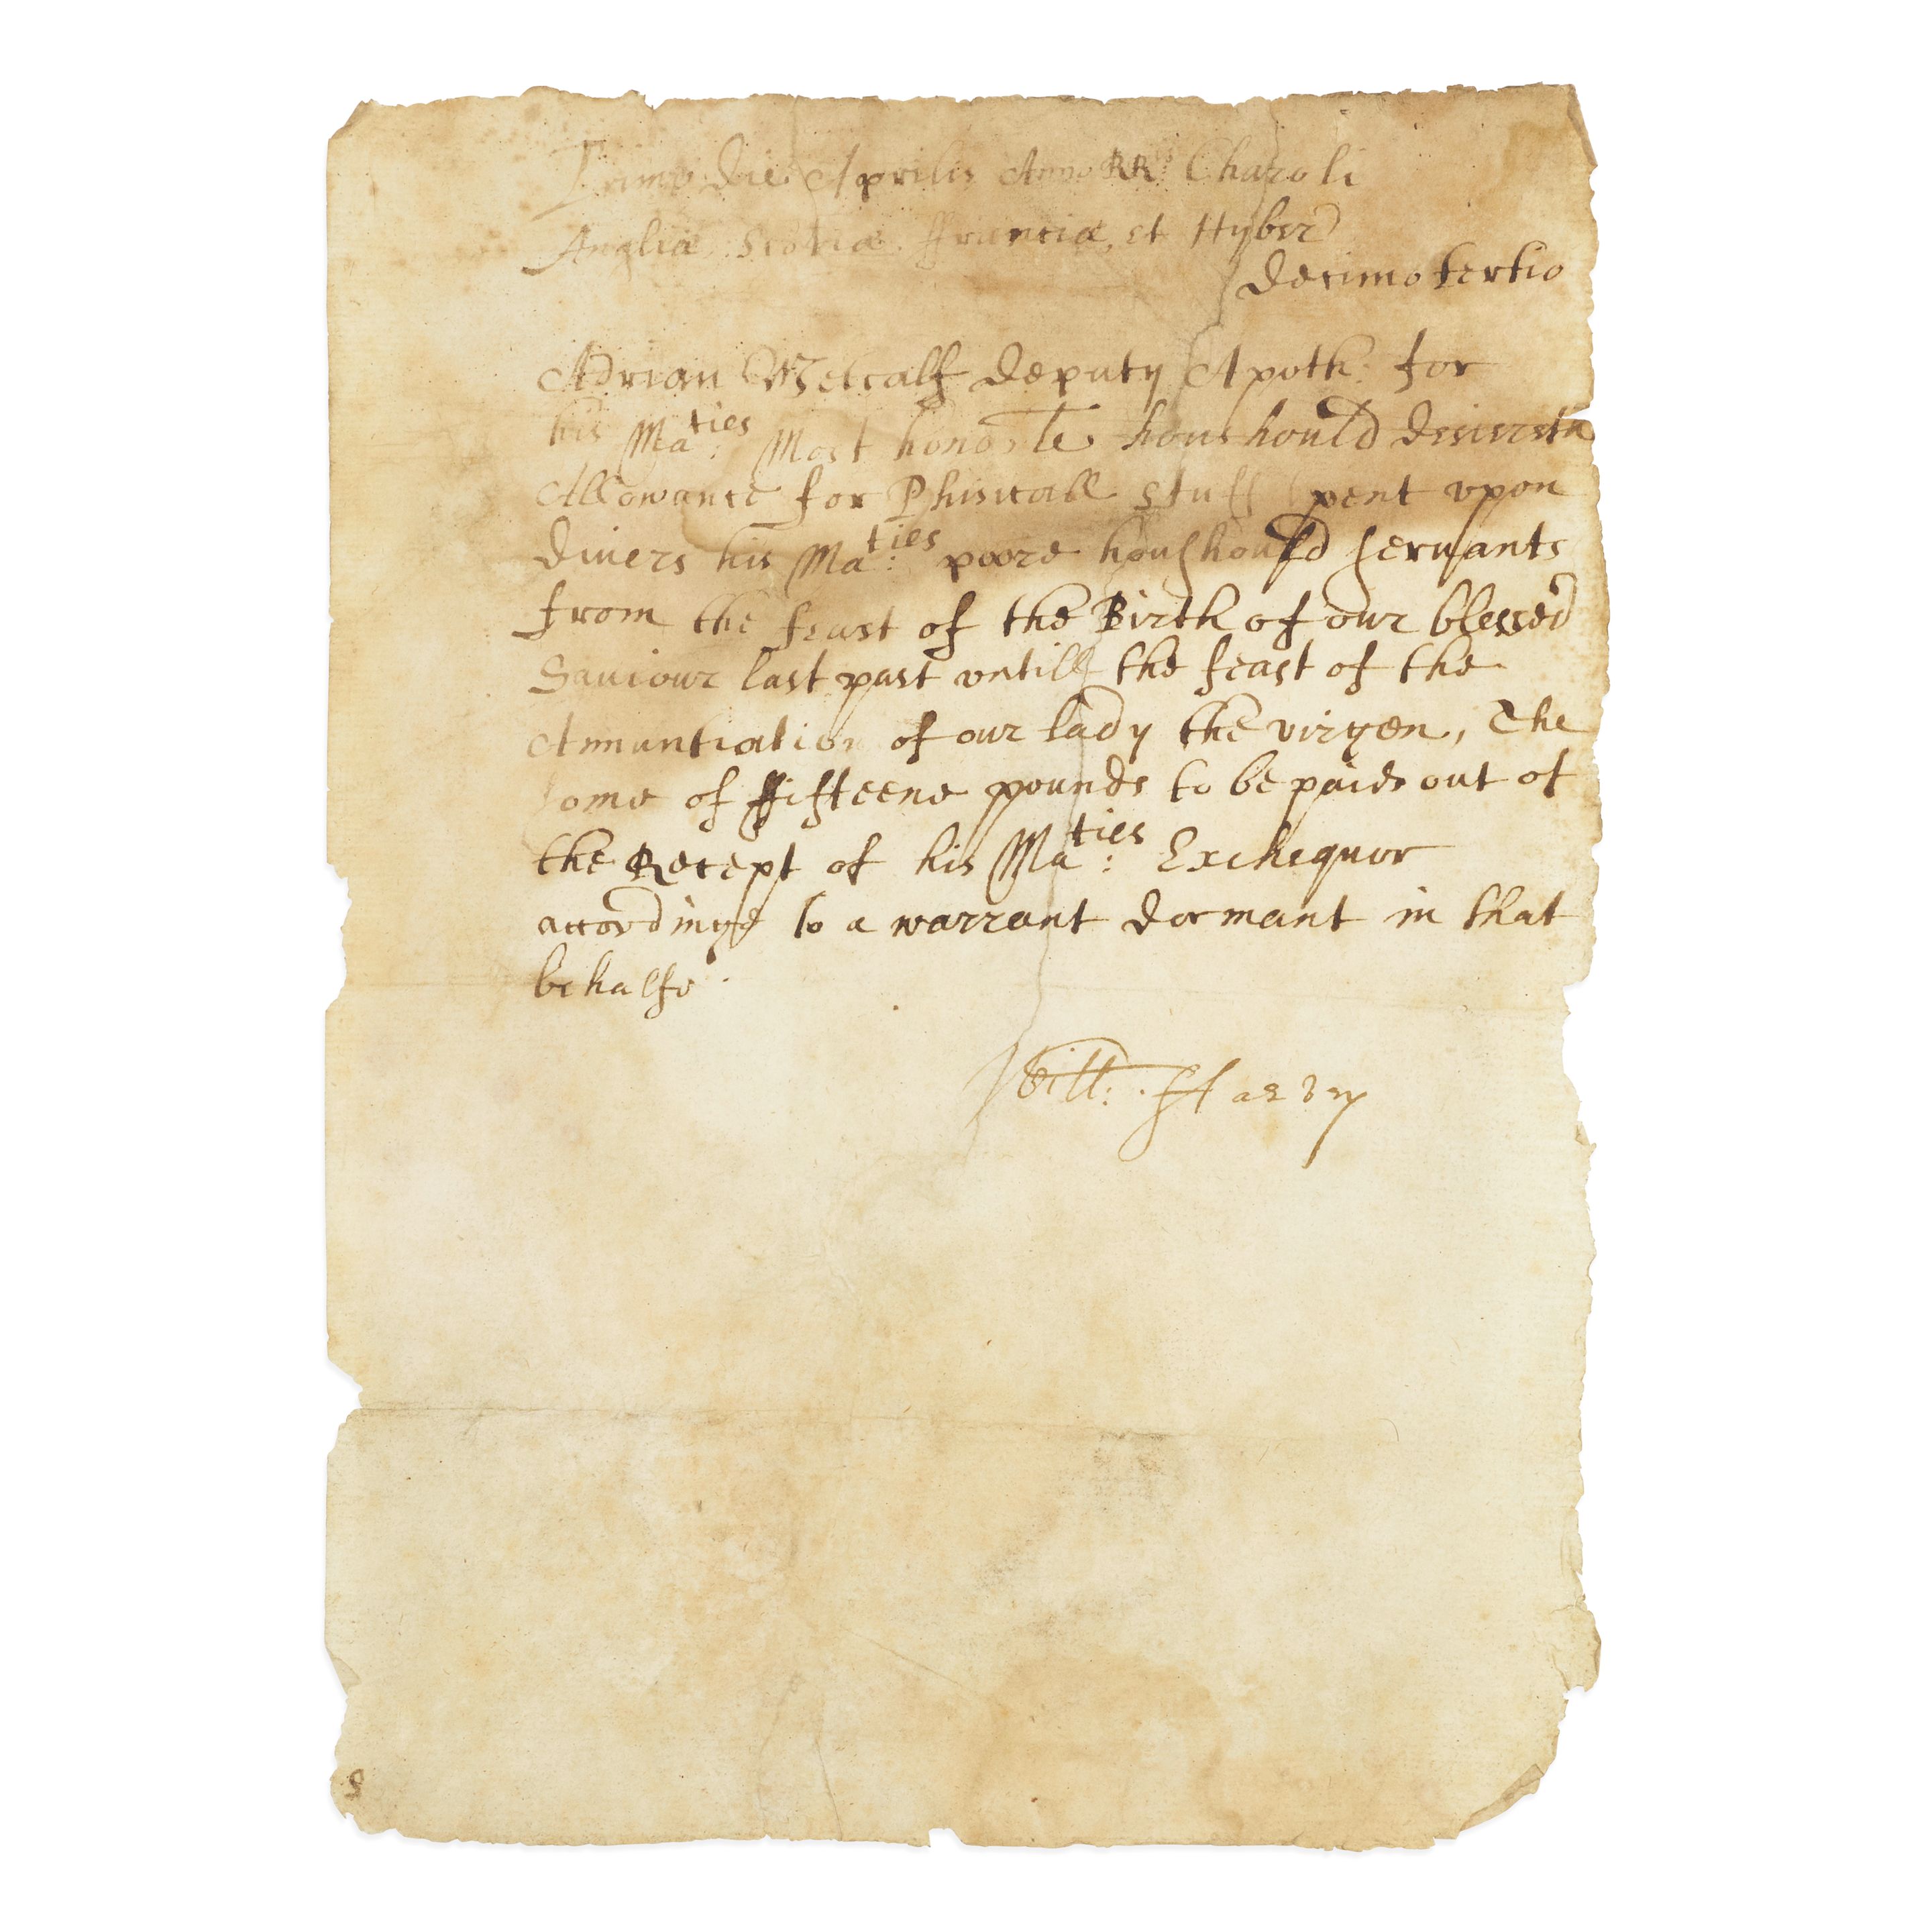 Primo die Aprilis Anno RRs Charoli
Angliæ Scotiæ ffrantiæ, et Hyber
decimo tertio
Adrian Metcalf deputy Apoth: for
his Maties: Most honoble houshould desiereth
Allowance for Phisicall stuff spent vpon
divers his Maties: poore houshould servants
from the feast of the Birth of our blessed
Saviour last past vntill the feast of the
Annuntiation of our lady the virgen, The
some of ffifteene pounds to be paide out of
the Recept of his Maties: Exchequor
accordinge to a warrant dormant in that
behalfe.
Will: Harvey